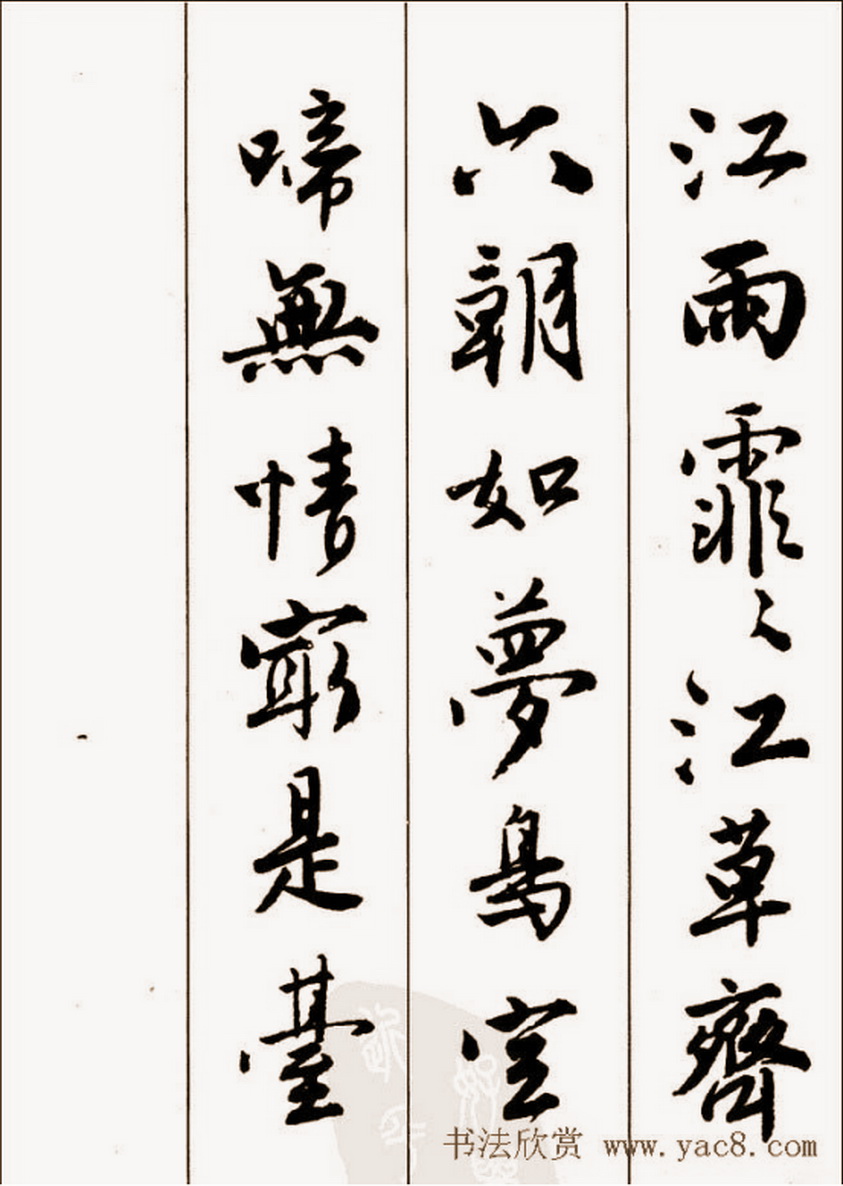 江雨霏々江草齊
六朝如夢鳥空
啼無情最是臺
书法欣赏 www.yac8.com